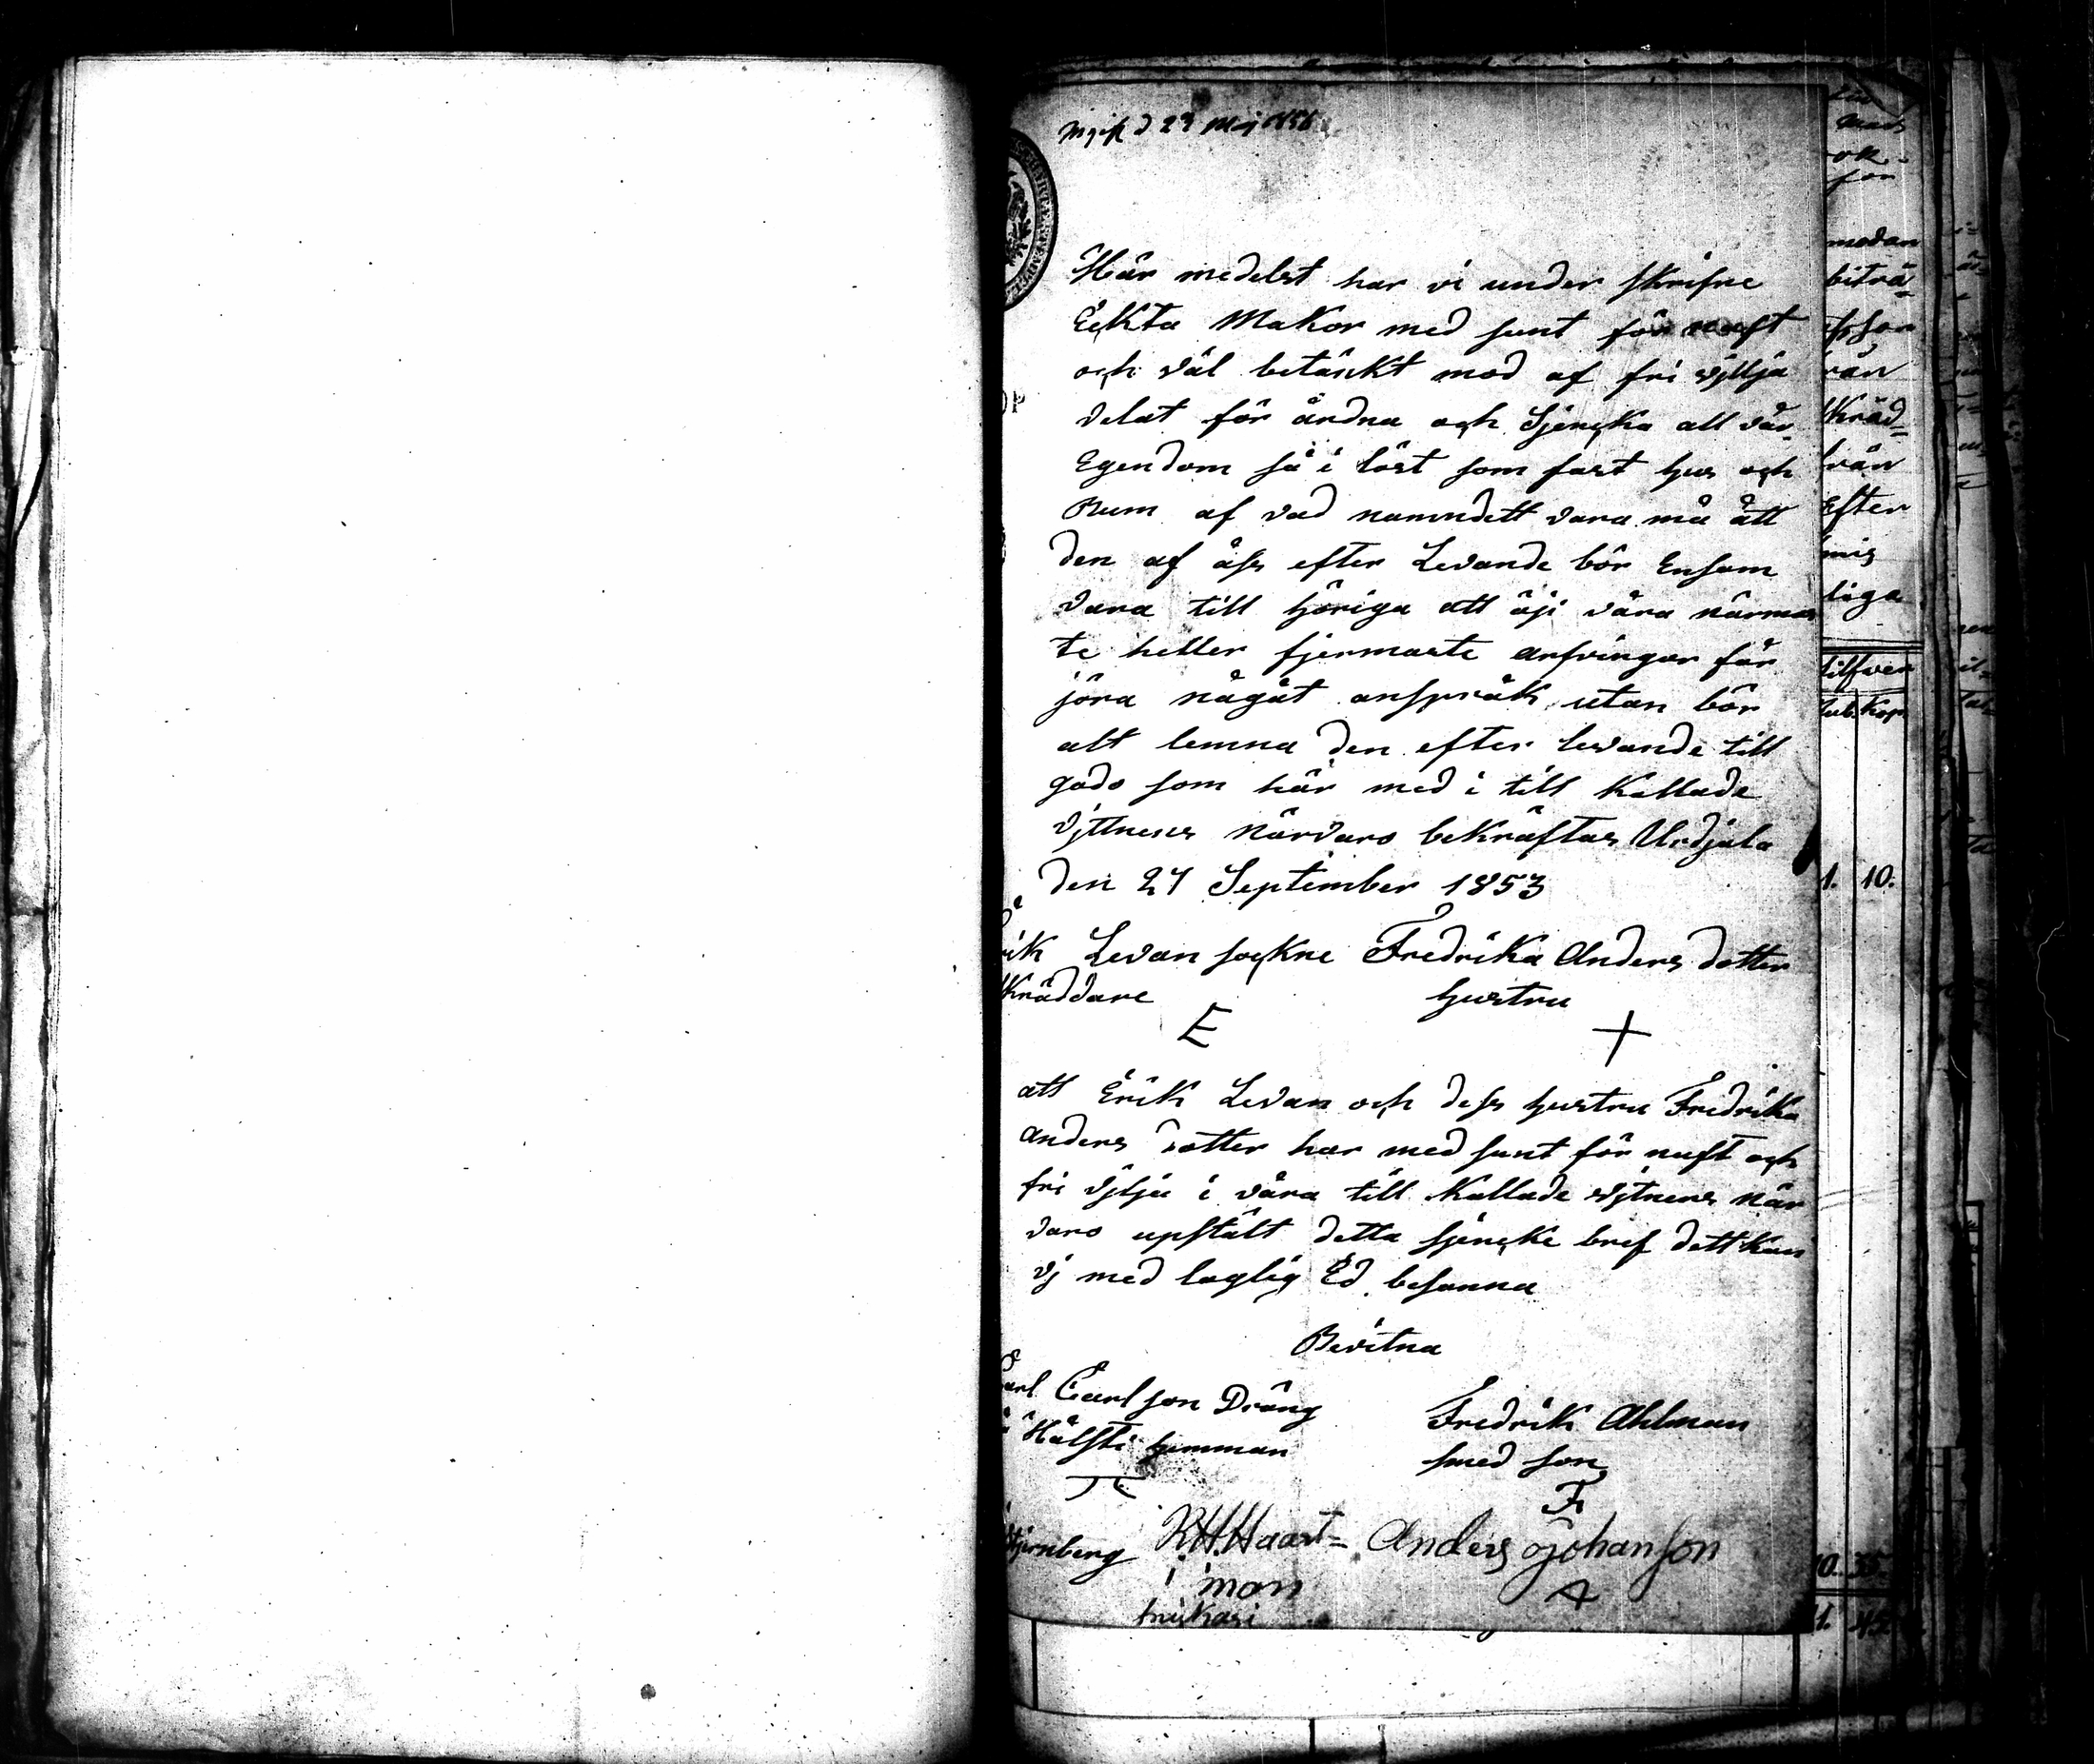 d 23 Maj 1856
Här medelst har vi under skrifne
Eckta Makor med sunt för nuft
och väl betänkt mod af fri vjllja
delat för ärdna och Sjencka all vår
Egendom så i löst som fast hus och
Rum af vad namndett vara må att
den af åss efter Levande bör Ensam
vara till höriga att äji våra närmas
te heller fjermaste arfvingar får
jöra någåt anspråk utan bör
alt lemna den efter levande till
godo som här med i till Kallade
vjttnens närvaro bekräftas Urdjala
den 27 September 1853
rik Levan sockne Fredrika Anders dotter
Skräddare hustru
E +
att Erik Levan och dess hustru Fredrika
anders dotter har med sunt för nuft och
fri vjlja i våra till Kallade vjtnens när
varo upstält detta sjencke bref dett kan
vj med laglig Ed besanna
Bevitna
Carl Carlson Dräng Fredrik Ahlman
å Hålsti hemman smed son
F
Stjernberg R H Haart= Anders Johanson
man A
modan
biträ=
rän
Skräd=
rän
Efter
mis
liga
Silfver
Rub. Kop.
1. 10.